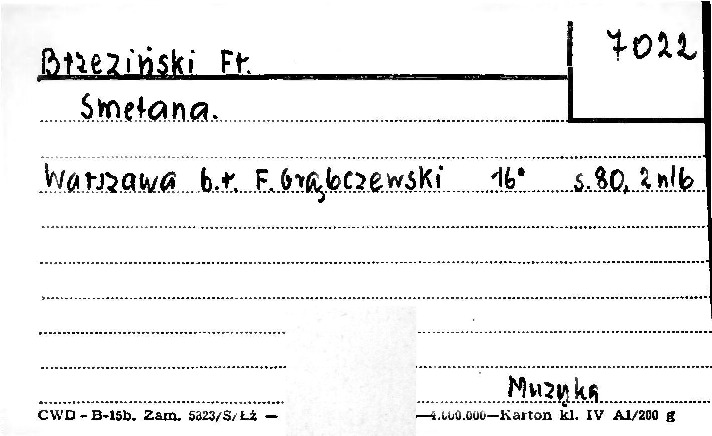 Brzeziński Fr.
7022
Smetana.
Warszawa b.r. F. Grąbczewski 16° s. 80, 2 nlb
Muzyka
CWD - B-15b. Zam. 5323/S/Łż — —4.000.000—Karton kl. IV A1/200 g